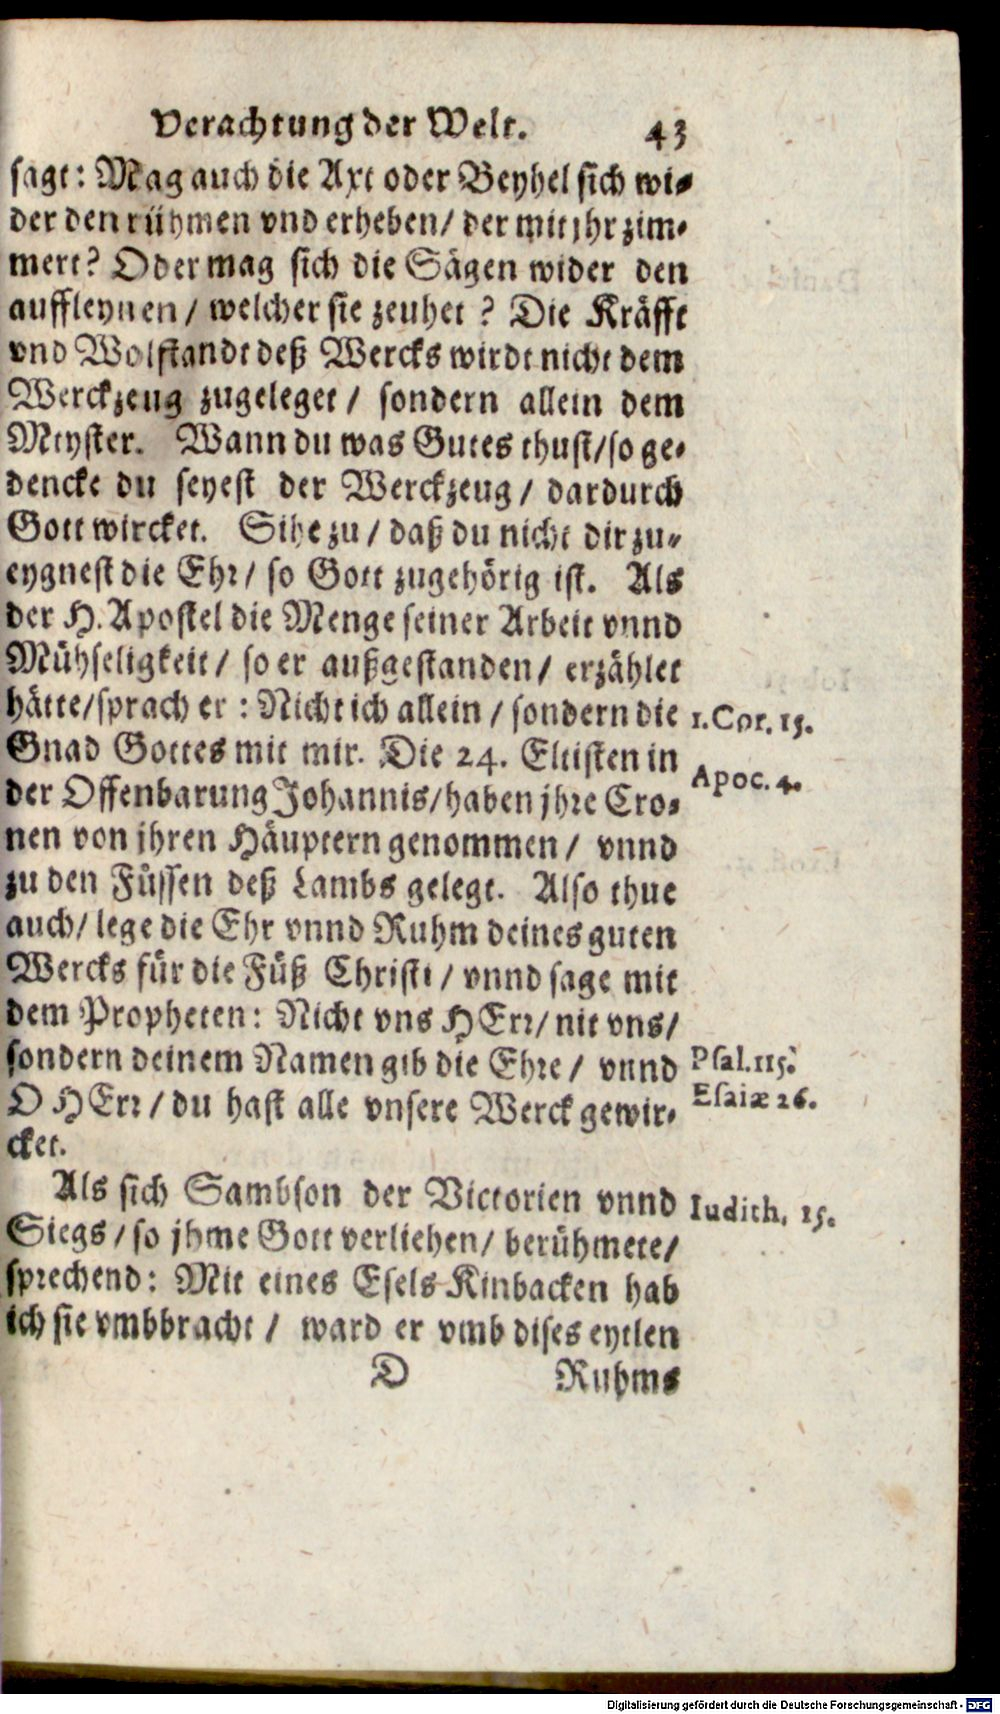 Verachtung der Welt. 43
sagt: Mag auch die Axt oder Beyhel sich wi-
der den rühmen vnd erheben/ der mit jhr zim-
mert? Oder mag sich die Sägen wider den
auffleynen/ welcher sie zeuhet? Die Kräfft
vnd Wolstandt deß Wercks wirdt nicht dem
Werckzeug zugeleget/ sondern allein dem
Meyster. Wann du was Gutes thust/so ge-
dencke du seyest der Werckzeug/ dardurch
Gott wircket. Sihe zu/ daß du nicht dir zu-
eygnest die Ehr/ so Gott zugehörig ist. Als
der H. Apostel die Menge seiner Arbeit vnnd
Mühseligkeit/ so er außgestanden/ erzählet
hätte/sprach er: Nicht ich allein/ sondern die 1.Cor. 15.
Gnad Gottes mit mir. Die 24. Eltisten in
der Offenbarung Johannis/haben jhre Cro- Apoc. 4.
nen von jhren Häuptern genommen/ vnnd
zu den Füssen deß Lambs gelegt. Also thue
auch/ lege die Ehr vnnd Ruhm deines guten
Wercks für die Füß Christi/ vnnd sage mit
dem Propheten: Nicht vns HErr/ nit vns/
sondern deinem Namen gib die Ehre/ vnnd Psal.115.
O HErr/ du hast alle vnsere Werck gewir- Esaiæ 26.
cket.
Als sich Sambson der Victorien vnnd Iudith. 15.
Siegs/ so jhme Gott verliehen/ berühmete/
sprechend: Mit eines Esels Kinbacken hab
ich sie vmbbracht/ ward er vmb dises eytlen
D Ruhms
Digitalisierung gefördert durch die Deutsche Forschungsgemeinschaft - DFG